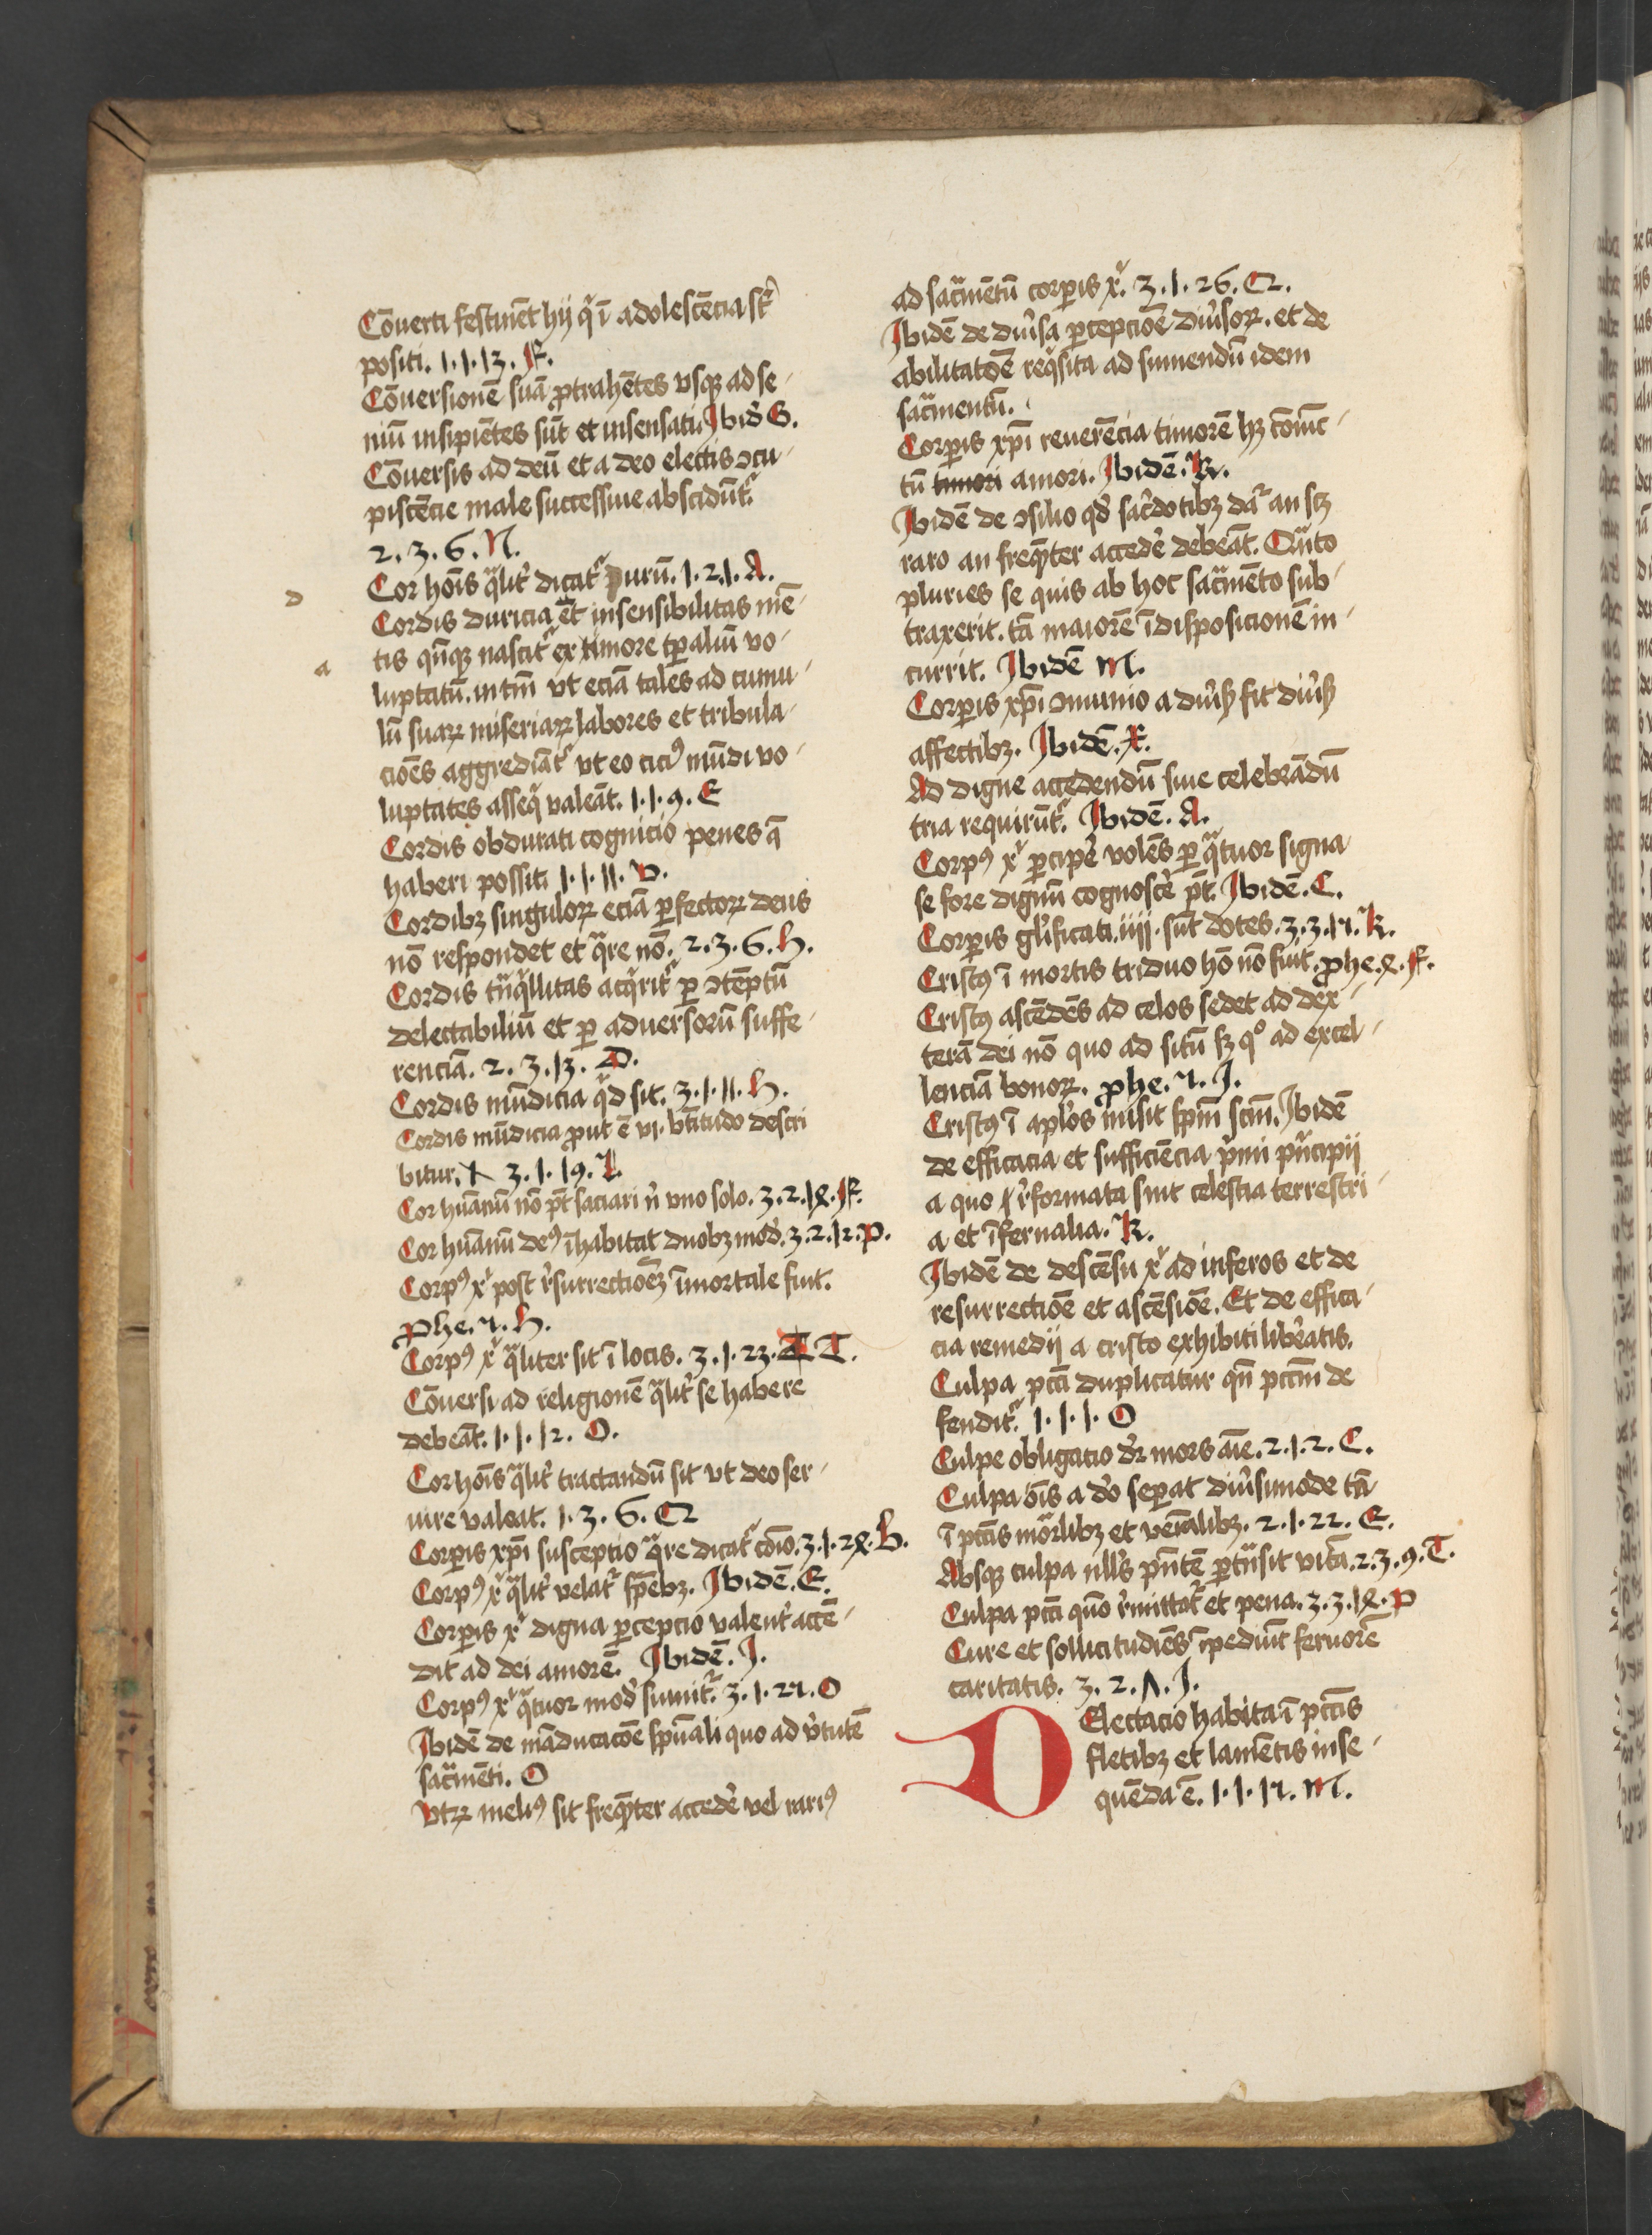 Cōuerti festinēt hij qͥ ī adolescēcia st̄
positi. 1.1.13. F.
Cōuersionē suā ꝓtrahētes vsqꝫ ad se-
niū insipiētes sūt et insensati. Ibid̓ G.
Cōuersis ad deū et a deo electis ↄcu-
piscēcie male successiue abscidūt᷑
2.3.6. N.
Cor hoīs qͣlit̓ dicat᷑ purū. 1.2.1. A.
D
Cordis duricia et insensibilitas mē-
tis qn̄qꝫ nascit᷑ ex timore tꝑaliū vo-
a
luptatū. in tm̄ vt eciā tales ad cumu-
lū suaꝝ miseriaꝝ labores et tribula-
cioēs aggrediāt᷑ vt eo cici᷒ mūdi vo-
luptates asseqͥ valeāt. 1.1.9. E
Cordis obdurati cognicio penes qͣ
haberi possit. 1.1.11. V.
Cordibꝫ singuloꝝ eciā ꝑfectoꝝ deus
nō respondet et qͣre nō. 2.3.6. H.
Cordis tͣnqͥllitas acqͥrit᷑ ꝑ ↄtēptū
delectabiliū et ꝑ aduersorū suffe-
renciā. 2.3.13. D.
Cordis mūdicia qͥd sit. 3.1.11. H.
Cordis mūdicia ꝓut ē vi. bt̄itudo descri
bitur. X 3.1.19. L
Cor huānū nō pt̄ saciari n̓ vno solo. 3.2.18. F.
Cor huānū de᷒ īhabitat duobꝫ mod̓. 3.2.12. P.
Corp᷒ xͥ post r̓surrectioēꝫ īmortale fuit.
Phe. 7. H.
Corp᷒ xͥ qͣliter sit ī locis. 3.1.23. T T.
Cōuersi ad religionē qͣlit̓ se habere
debeāt. 1.1.12. O.
Cor hoīs qͣlit̓ tractandū sit vt deo ser-
uire valeat. 1.3.6. Q
Corꝑis xp̄i susceptio qͣre dicat᷑ cōio. 3.1.28. B.
Corp᷒ xͥ qͣlit̓ velat᷑ sp̄ebꝫ. Ibidē. E.
Corꝑis xͥ digna ꝑcepcio valent̓ accē-
dit ad dei amorē. Ibidē. I.
Corp᷒ xͥ qͣtuor mod̓ sumit᷑. 3.1.27. O
Ibidē de māducacōe spūali quo ad v̓tutē
sacͣmēti. O
Vtꝝ meli᷒ sit freqͣnter acced̓e vel rari᷒
ad sacͣmētū corꝑis xͥ. 3.1.26. Q.
Ibidē de diu̓sa ꝑcepcioē diu̓soꝝ. et de
abilitatōe reqͥsita ad sumendū idem
sacͣmentū.
Corꝑis xp̄i reuerēcia timorē hꝫ cōiūc-
tū timori amori. Ibidē. K.
Ibidē de ↄsilio qd̓ sac̓dotibꝫ dat᷑ an scꝫ
raro an freqͣnter acced̓e debeāt. Qͣnto
pluries se quis ab hoc sacͣmēto sub-
traxerit. tā maiorē īdisposicionē in-
currit. Ibidē M.
Corꝑis xp̄i ↄmunio a diu̓sꝭ fit diu̓sꝭ
affectibꝫ. Ibidē. X.
Ad digne accedendū siue celebrādū
tria requirūt᷑. Ibidē. A.
Corp᷒ xͥ ꝑcip̓e volēs ꝑ qͣtuor signa
se fore dignū cognosc̓e pt̄. Ibidē. C.
Corꝑis gl̓ificati. iiij. sūt dotes. 3.3.17. K.
Crist᷒ ī mortis triduo hō nō fuit. phe. 8. F.
Crist᷒ ascēdēs ad celos sedet ad dex-
terā dei nō quo ad sitū sꝫ qͦ ad excel-
lenciā bonoꝝ. phe. 7. I.
Crist᷒ ī apl̓os misit sp̄m scm̄. Ibidē
de efficacia et sufficiēcia pͥmi pͥncipij
a quo r̓formata sūt celestia terrestri-
a et īfernalia. K.
Ibidē de descēsu xͥ ad inferos et de
resurrectioē et ascēsioē. Et de effica-
cia remedij a cristo exhibiti lib̓eatis.
Culpa pctī duplicatur qn̄ pctm̄ de
fendit᷑. 1.1.1. O
Culpe obligacio dr̓ mors aīe. 2.1.2. C.
Culpa oīs a d̓o seꝑat diu̓simode tā
ī pctīs mͣorlibꝫ et veīalibꝫ. 2.1.22. E.
Absqꝫ culpa null᷒ pn̄tē ꝑtͣnsit vitā. 2.3.9. T.
Culpa pctī quō r̓mittat᷑ et pena. 3.3.18. P
Cure et sollicitudiēs īpediūt feruorē
caritatis. 3.2.7. I.
DElectacio habita ī pctīs
fletibꝫ et lamētis inse-
quēda ē. 1.1.17. M.